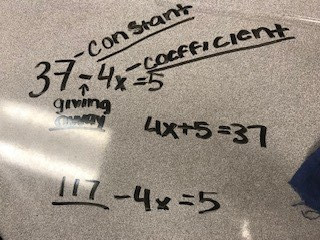 constant
coefficient
37-4x=5
↑
giving
away
4x+5=37
117 -4x=5